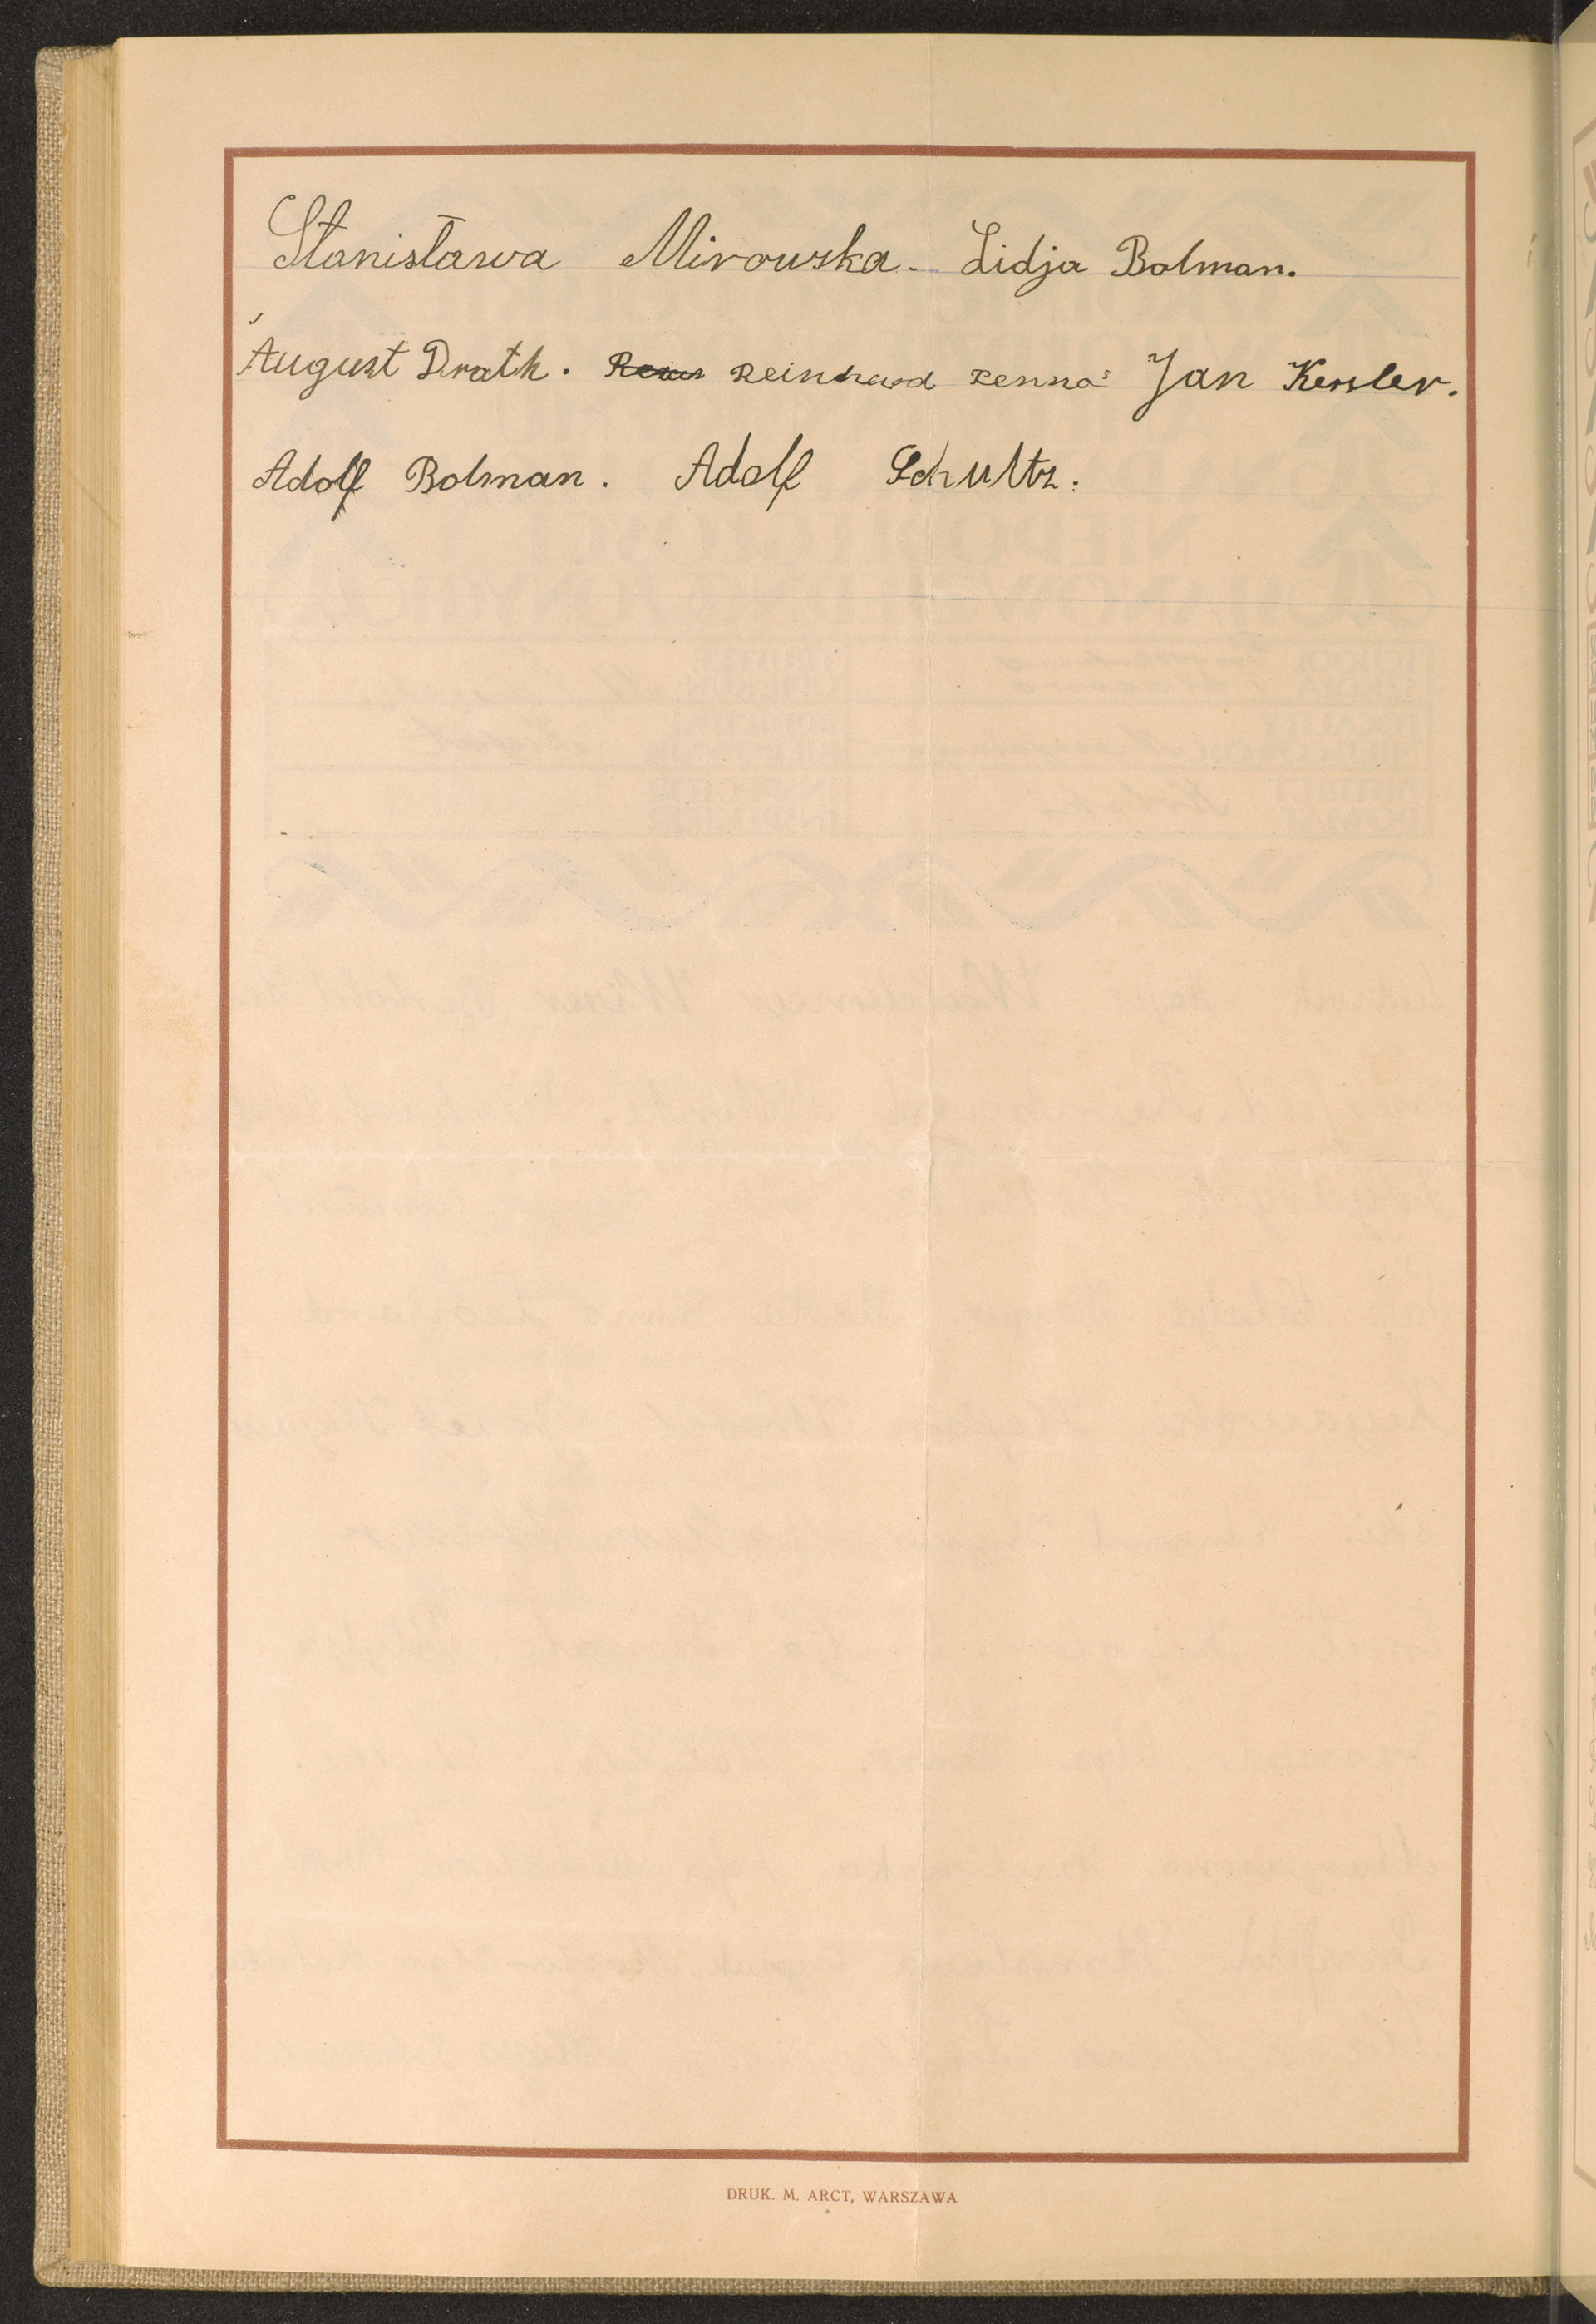 Stanisława Mirowska. Lidja Bolman.
August Drath. Reinhard Jan Kessler.
Adolf Bolman. Adolf Schultz.
DRUK. M. ARCT, WARSZAWA